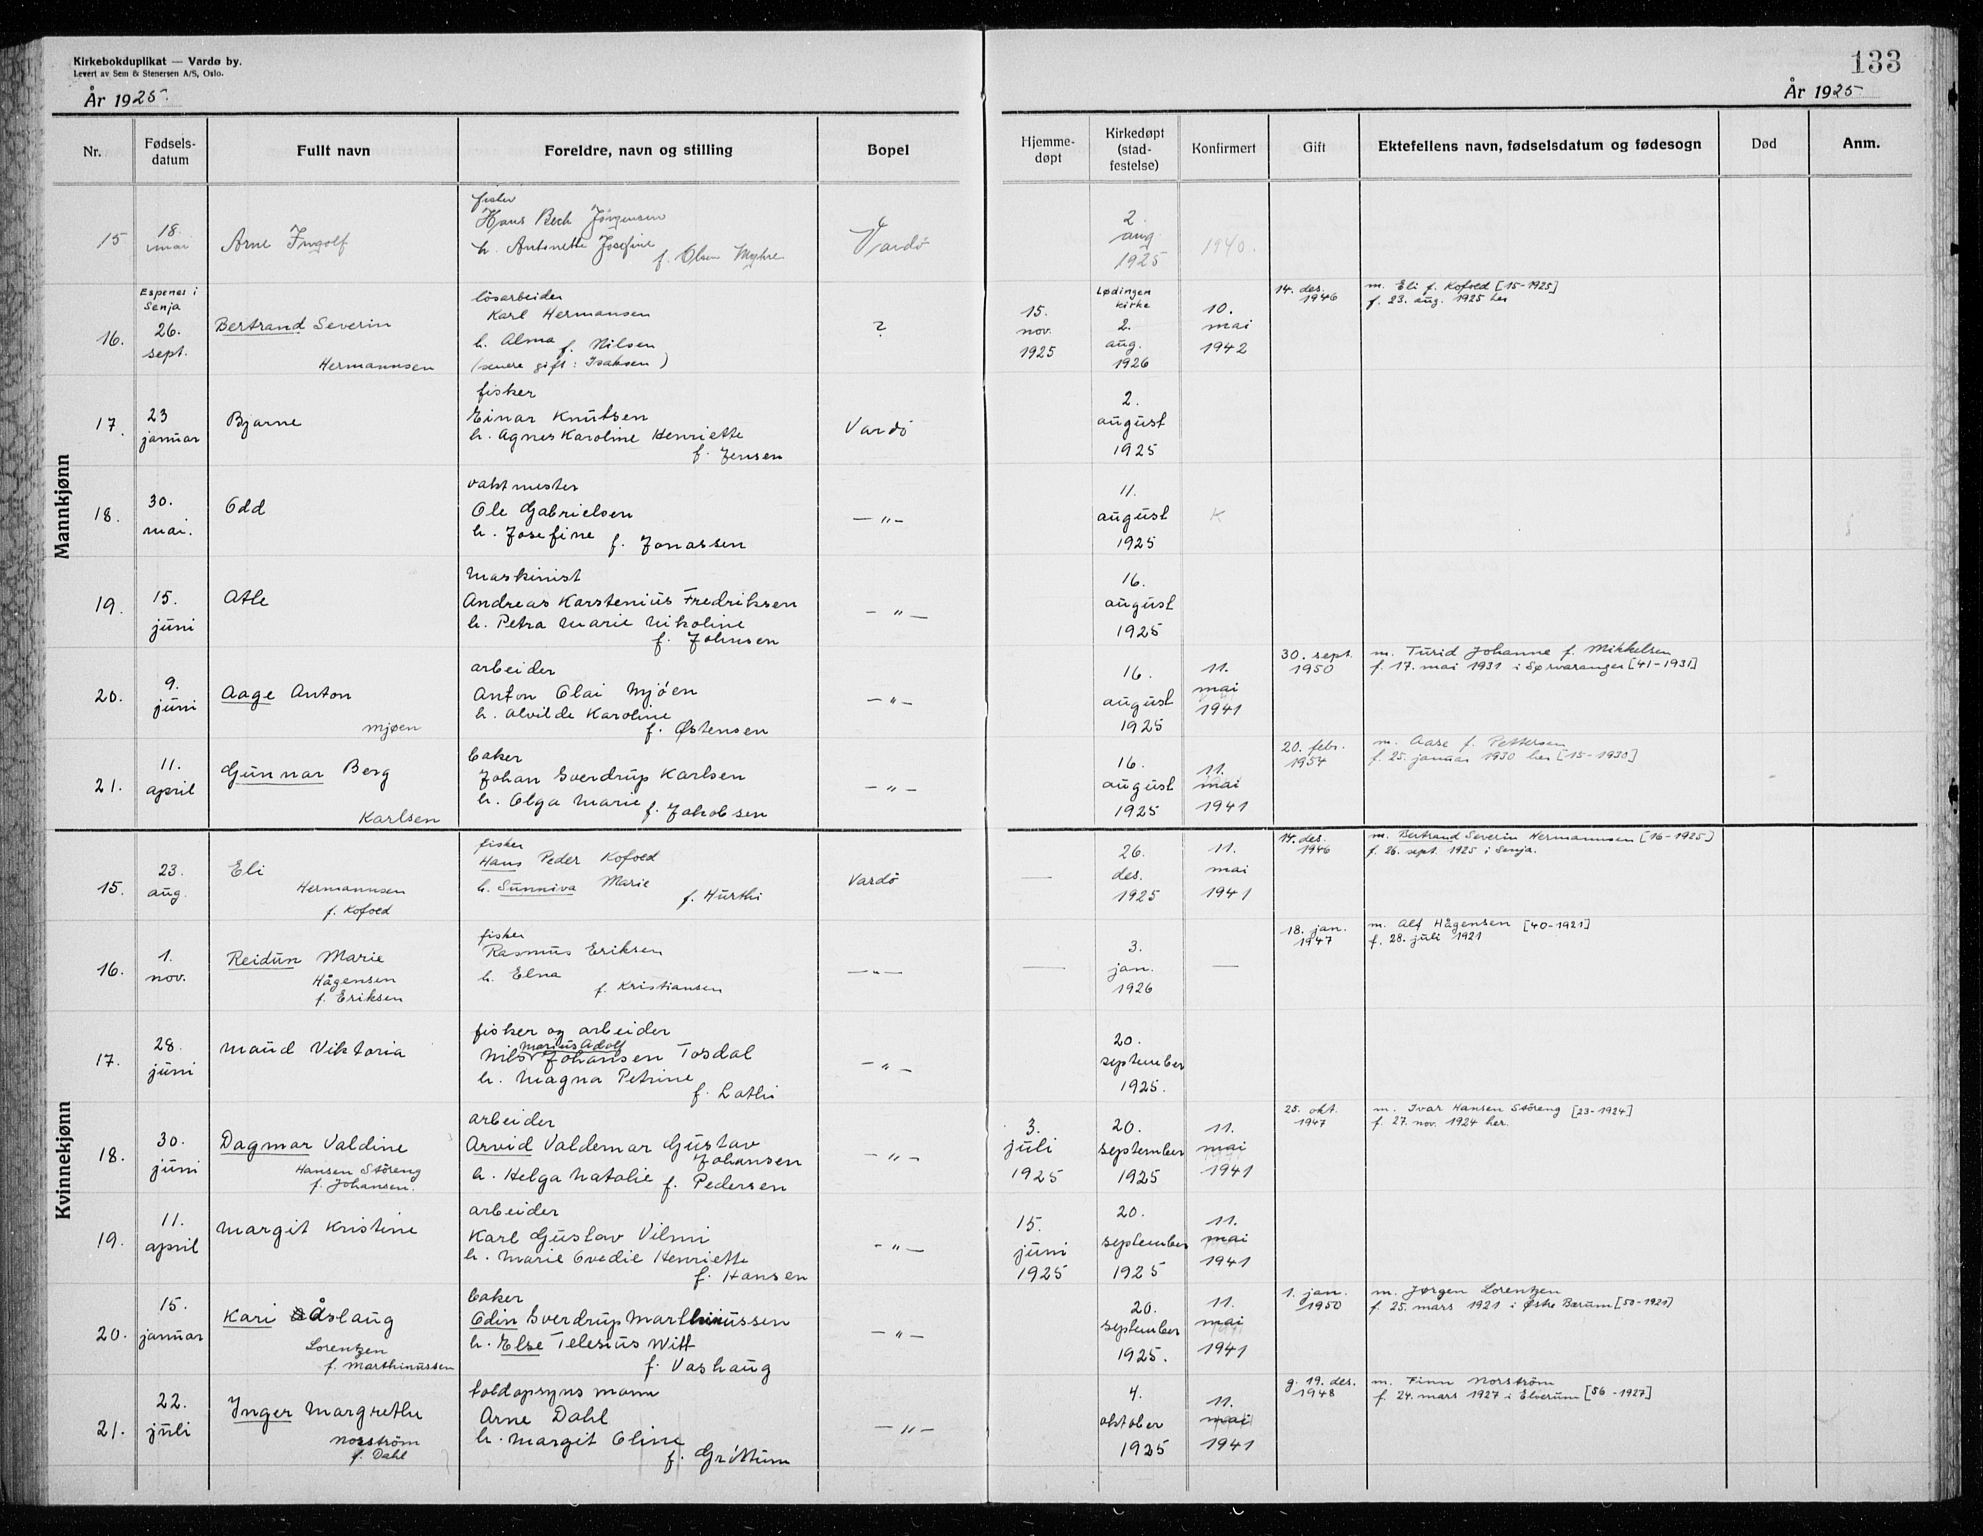 Kirkebokduplikat — Vardø by.
Levert av Sem & Stenersen A/S, Oslo.
År 1925.
133
År 1925
Nr.
Fødsels-
datum
Fullt navn
Foreldre, navn og stilling
Bopel
Hjemme-
døpt
Kirkedøpt
(stad-
festelse)
Konfirmert
Gift
Ektefellens navn, fødselsdatum og fødesogn
Død
Anm.
Mannkjønn
15
18.
mai
Arne Ingolf
fisker
Hans Bech Jørgensen
h. Antonette Josefine
f. Olsen Myhre
Vardø
2.
aug
1925
1940.
16.
Espenes i
Senja
26.
sept.
Bertrand Severin
Hermannsen
løsarbeider
Karl Hermansen
h. Alma f. Nilsen
(senere gift: Isaksen)
?
15.
nov.
1925
Lødingen
kirke
2.
aug.
1926
10.
mai
1942
14. des.
1946
m. Eli f. Kofoed [15-1925]
f. 23. aug. 1925 her
17.
23
januar
Bjarne
fisker
Einar Knutsen
h. Agnes Karoline Henriette
f. Jensen
Vardø
2.
august
1925
18.
30.
mai.
Odd
vaktmester
Ole Gabrielsen
h. Josefine f. Jonassen
— " —
11.
august
1925
K
19.
15.
juni
Atle
Maskinist
Andreas Karstenius Fredriksen
h. Petra Marie Nikoline
f. Johnsen
— " —
16.
august
1925
20.
9.
juni
Aage Anton
Mjøen
arbeider
Anton Olai Mjøen
h. Alvilde Karoline
f. Østensen
— " —
16.
august
1925
11.
mai
1941
30. sept.
1950
m. Turid Johanne f. Mikkelsen
f. 17. mai 1931 i Sørvaranger [41-1931]
21.
11.
april
Gunnar Berg
Karlsen
baker
Johan Sverdrup Karlsen
h. Olga Marie f. Jakobsen
— " —
16.
august
1925
11.
mai
1941
20. febr.
1954
m. Aase f. Pettersen
f. 25. januar 1930 her [15-1930]
Kvinnekjønn
15.
23.
aug.
Eli
Hermannsen
f. Kofoed
fisker
Hans Peder Kofoed
h. Sunniva Marie
f. Hurthi
Vardø
—
26.
des.
1925
11.
mai
1941
14. des.
1946
m. Bertrand Severin Hermannsen [16-1925]
f. 26. sept. 1925 i Senja.
16.
1.
nov.
Reidun Marie
Hågensen
f. Eriksen
fisker
Rasmus Eriksen
h. Elna
f. Kristiansen
— " —
—
3.
jan.
1926
—
18. jan.
1947
m. Alf Hågensen [40-1921]
f. 28. juli 1921
17.
28.
juni
Maud Viktoria
fisker og arbeider
Marius Adolf
Nils Johansen Tosdal
h. Magna Petrine
f. Lathi
— " —
20.
september
1925.
18.
30.
juni
Dagmar Valdine
Hansen Støreng
f. Johansen.
arbeider
Arvid Valdemar Gustav
Johansen
h. Helga Natalie f. Pedersen
— " —
3.
juli
1925
20.
september
1925
11.
mai
1941
25. okt.
1947
m. Ivar Hansen Støreng [23-1924]
f. 27. nov. 1924 her.
19.
11.
april
Margit Kristine
arbeider
Karl Gustav Vilmi
h. Marie Ovedie Henriette
f. Hansen
— " —
15.
juni
1925
20.
september
1925
11.
mai
1941
20.
15.
januar
Kari Åslaug
Lorentzen
f. Marthinussen
baker
Odin Sverdrup Marthinussen
h. Else Telesius Witt
f. Vashaug
— " —
20.
september
1925.
11.
mai
1941
1. jan.
1950
m. Jørgen Lorentzen
f. 25. mars 1921 i Østre Bærum [50-1921]
21.
22.
juli
Inger Margrethe
Norström
f. Dahl
toldopsynsmann
Arne Dahl
h. Margit Oline
f. Grøttum
— " —
4.
oktober
1925
11.
mai
1941
g. 19. des.
1948
m. Finn Norström
f. 24. mars 1927 i Elverum [56-1927]